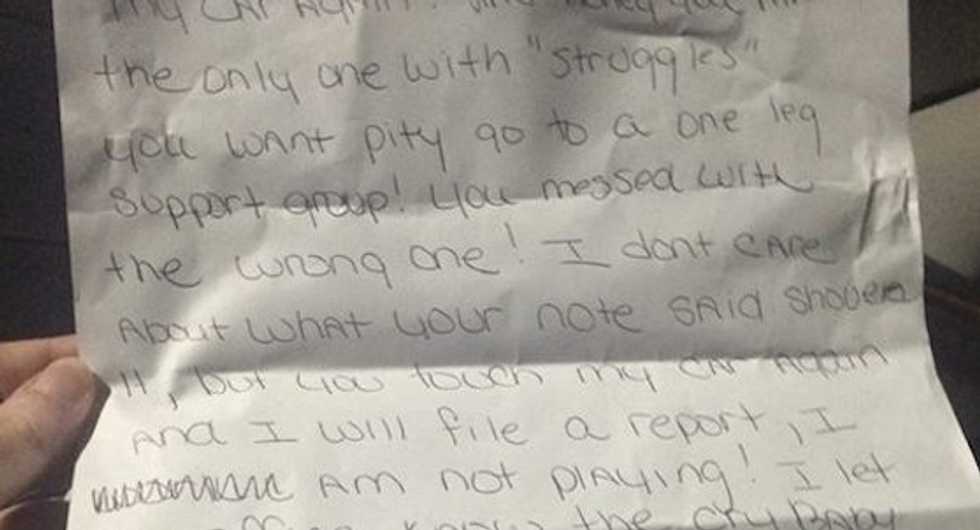 my CAR AgAin! And honey you
the only one with "struggles"
you wAnt pity go to a one leg
support group! you messed with
the wrong one! I dont CARE
About whAt your note SAid shovem
It, but you touch my CAR AgAin
And I will file a report, I
Am not plAying! I let
office know the cry BABY